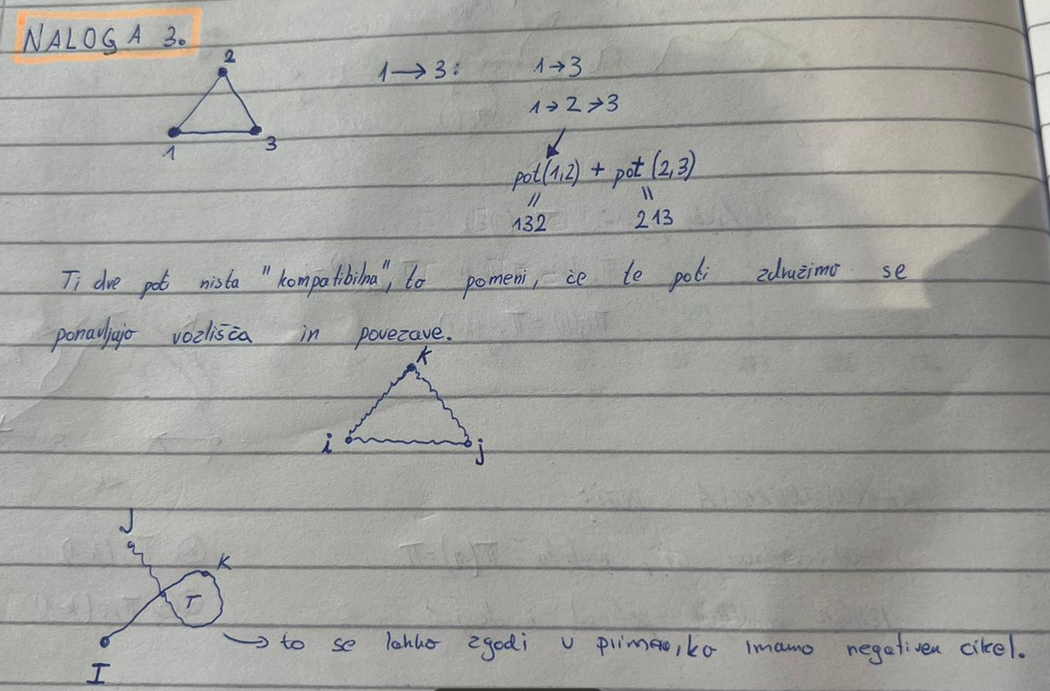 NALOGA 3.
2
1 3
1 → 3: 1 → 3
1 → 2 → 3
pot(1,2) + pot (2,3)
= =
132 213
Ti dve poti nista "kompatibilna", to pomeni, če te poti združimo se
ponavljajo vozlišča in povezave.
K
i j
J
K
T
I
→ to se lahko zgodi v primeru, ko imamo negativen cikel.